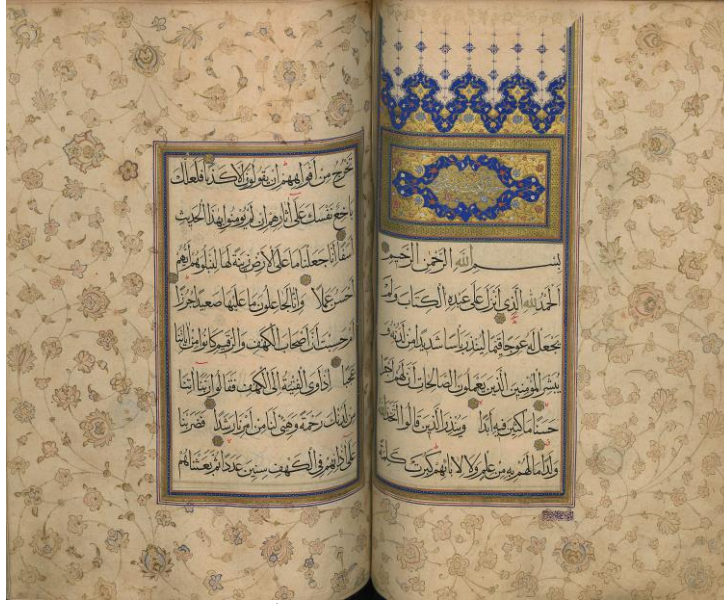 بسم الله الرحمن الرحيم
الحمد لله الذي أنزل على عبده الكتاب ولم
يجعل له عوجا قيما لينذر بأسا شديدا من لدنه و
يبشر المؤمنين الذين يعملون الصالحات أن لهم أجرا
حسنا ماكثين فيه أبدا وينذر الذين قالوا اتخذ الله
ولدا ما لهم به من علم ولا لآبائهم كبرت كلمة
تخرج من أفواههم إن يقولون إلا كذبا فلعلك
باخع نفسك على آثارهم إن لم يؤمنوا بهذا الحديث
أسفا إنا جعلنا ما على الأرض زينة لها لنبلوهم أيهم
أحسن عملا وإنا لجاعلون ما عليها صعيدا جرزا
أم حسبت أن أصحاب الكهف والرقيم كانوا من آياتنا
عجبا إذ أوى الفتية إلى الكهف فقالوا ربنا آتنا
من لدنك رحمة وهيئ لنا من أمرنا رشدا فضربنا
على آذانهم في الكهف سنين عددا ثم بعثناهم